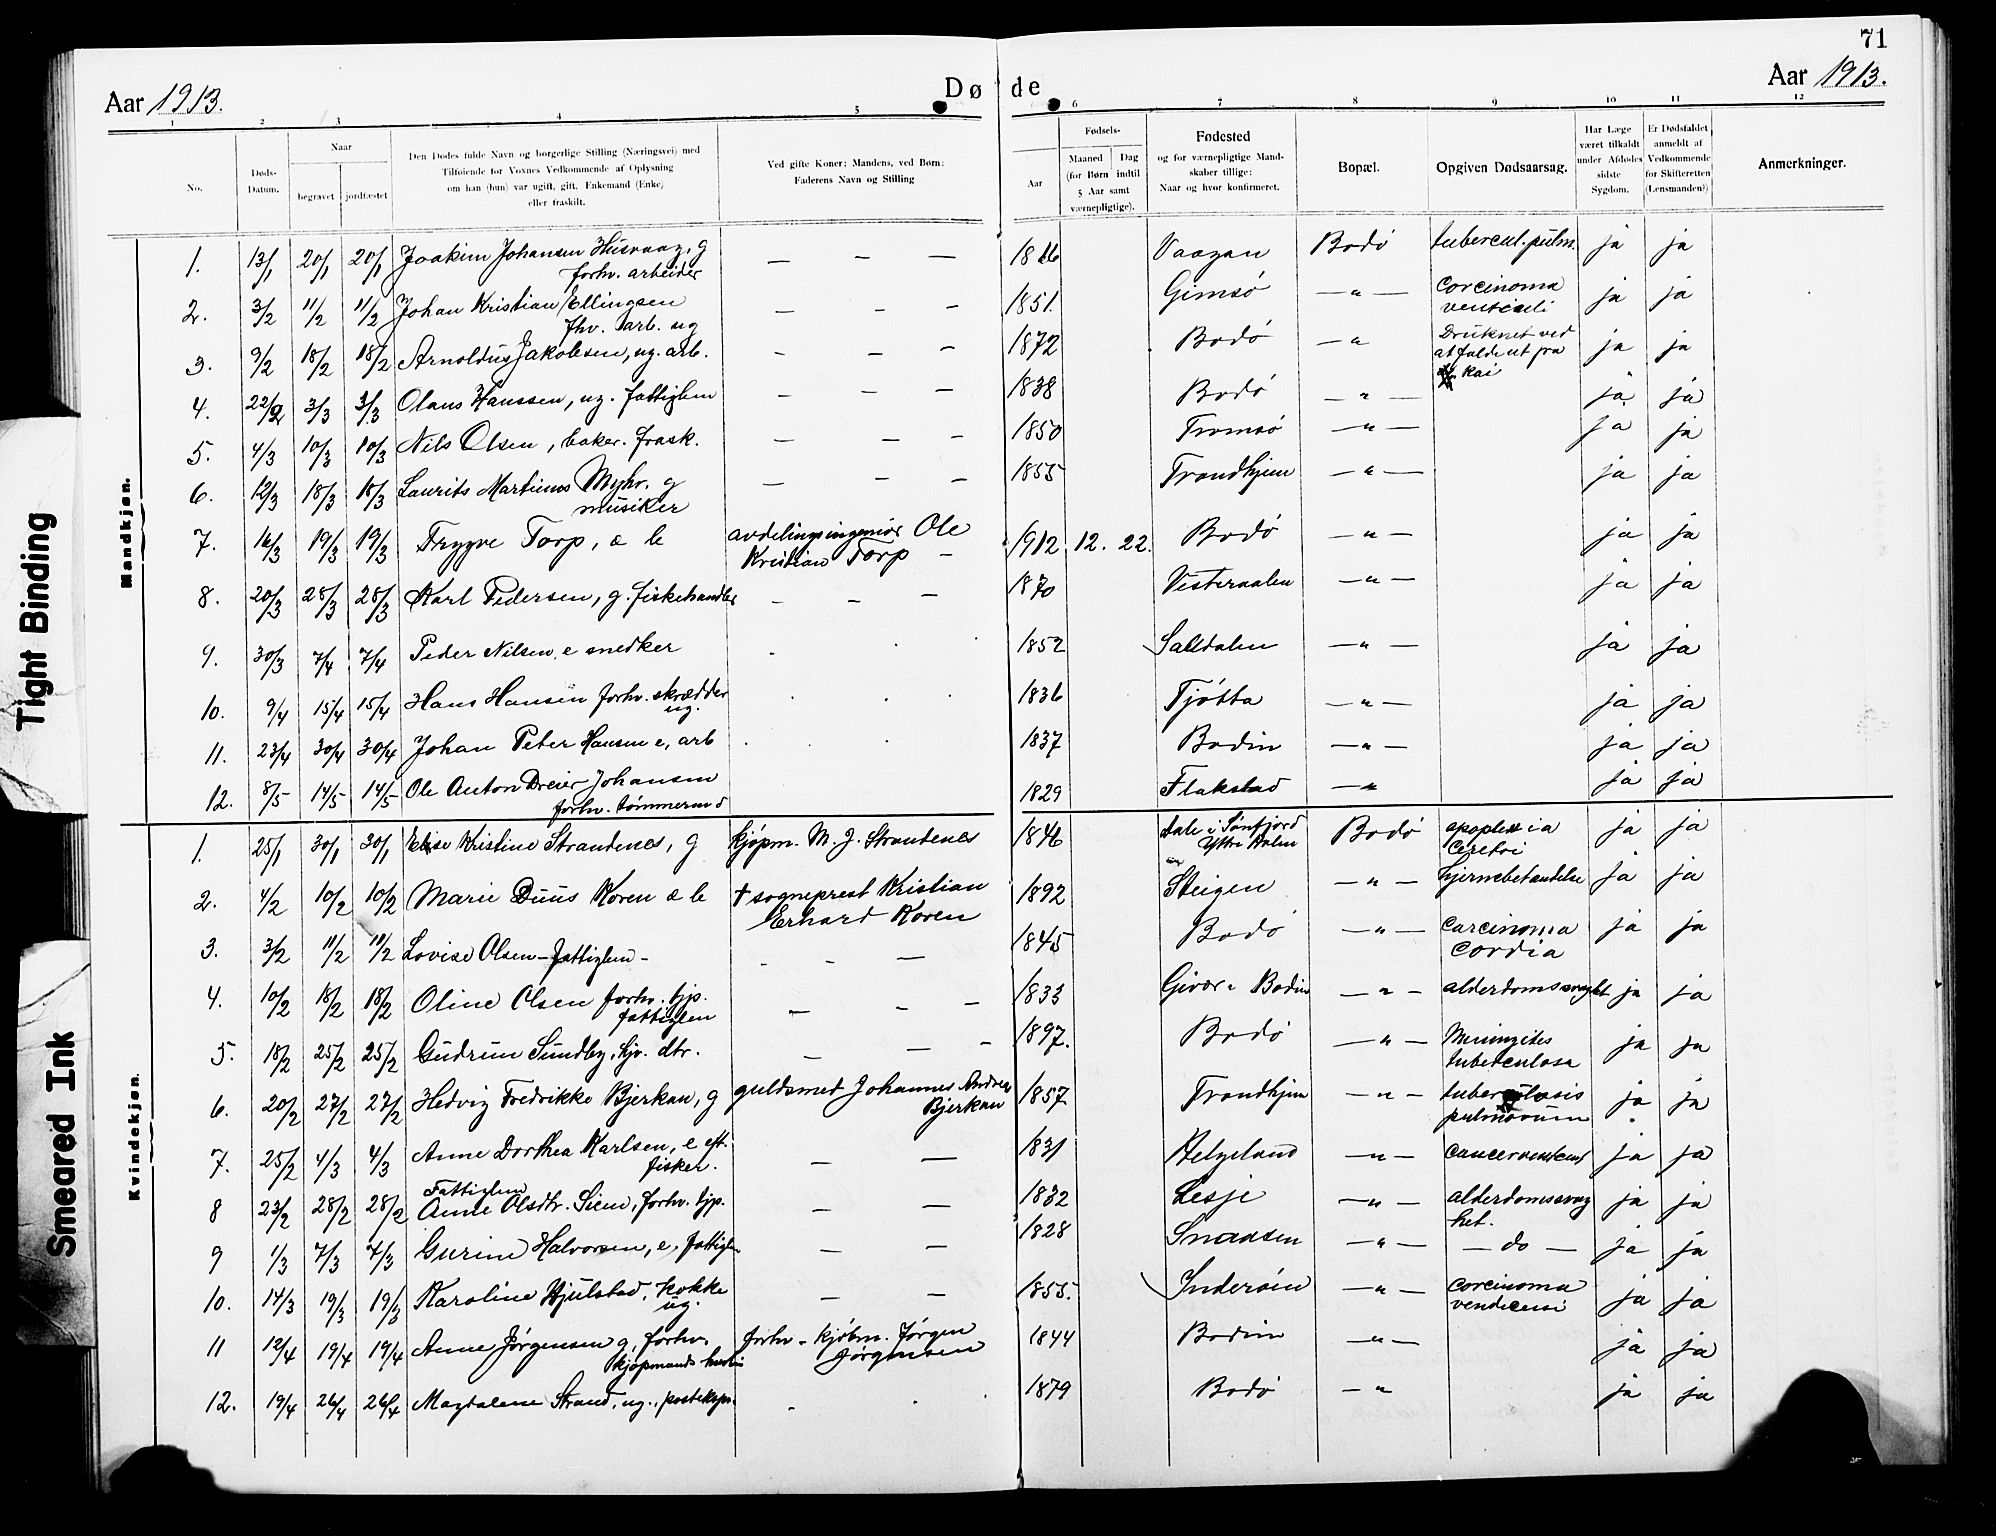 71
Aar 1913.
Døde
Aar 1913.
1 2 3 4 5 6 7 8 9 10 11 12
No.
Døds-Datum.
Naar
begravet
jordfæstet
Den Dødes fulde Navn og borgerlige Stilling (Næringsvei) med
Tilføiende for Voxnes Vedkommende af Oplysning
om han (hun) var ugift, gift, Enkemand (Enke)
eller fraskilt.
Ved gifte Koner: Mandens, ved Børn:
Faderens Navn og Stilling
Fødsels-
Aar
Maaned Dag
(for Børn indtil
5 Aar samt
værnepligtige).
Fødested
og for værnepligtige Mand-
skaber tillige:
Naar og hvor konfirmeret.
Bopæl.
Opgiven Dødsaarsag.
Har Læge
været tilkaldt
under Afdødes
sidste
Sygdom.
Er Dødsfaldet
anmeldt af
Vedkommende
for Skifteretten
(Lensmanden?)
Anmerkninger.
Mandkjøn.
1. 13/1 20/1 20/1 Joakim Johansen Husvaag, g — — — Vaagan Bodø tubercul. pulm. ja ja
forhv. arbeider
2. 3/2 11/2 11/2 Johan Kristian Ellingsen — — — 1851. Gimsø —"— Corcinoma ja ja
fhv. arb. ug ventriculi
3. 9/2 18/2 18/2 Arnoldus Jakobsen, ug. arb. — — — 1872 Bodø —" Druknet ved ja ja
at falde ut fra
kai
4. 22/2 3/3 3/3 Olaus Hanssen, ug. fattiglem — — — 1838 Bodø —"— ja ja
5. 4/3 10/3 10/3 Nils Olsen, baker. frask. — — — 1850 Tromsø —"— ja ja
6. 12/3 18/3 18/3 Laurits Martinus Myhr. g — — — 1855 Trondhjem —"— ja ja
musiker
7. 16/3 19/3 19/3 Trygve Torp, æ b avdelingsingeniør Ole 1912 12. 22. Bodø —"— ja ja
Kristian Torp —
8. 20/3 28/3 28/3 Karl Pedersen, g. fiskehandler — — — 1870 Vesteraalen —"— ja ja
9. 30/3 7/4 7/4 Peder Nilsen, e snedker 1852 Saltdalen —"— ja ja
10. 9/4 15/4 15/4 Hans Hansen forhv. skrædder 1836 Tjøtta —"— ja ja
ug.
11. 23/4 30/4 30/4 Johan Peter Hansen e, arb 1837 Bodin —"— ja ja
12. 8/5 14/5 14/5 Ole Anton Dreier Johansen 1829 Flakstad —" ja ja
forhv. tømmermd
Kvindekjøn.
1. 25/1 30/1 30/1 Elise Kristine Strandenes, g kjøpm. M. J. Strandenes 1846 Dale i Sønfjord Bodø apoplexia ja ja
Yttre Holm cerebri
2. 4/2 10/2 10/2 Marie Duus Koren æ b † sogneprest Kristian 1892 Steigen —"— hjernebetændelse ja ja
Erhard Koren
3. 3/2 11/2 11/2 Lovise Olsen — fattiglem — — — — 1845 Bodø —"— Carcinoma ja ja
cordia
4. 10/2 18/2 18/2 Oline Olsen forhv. tjp. — — — 1833 Givær i Bodin —"— alderdomssvaght ja ja
fattiglem
5. 18/2 25/2 25/2 Gudrun Sundby, hjv. dtr. — — — 1897. Bodø —"— Meningites ja ja
tuberculosa
6. 20/2 27/2 27/2 Hedvig Fredrikke Bjerkan, g guldsmed Johannes Andreas 1857 Trondhjem —"— tuberculosis ja ja
Bjerkan pulmonum
7. 25/2 4/3 4/3 Anne Dorthea Karlsen, e eft. — — 1831 Helgeland —"— cancer ventriculi ja ja
fisker.
Fattiglem
8 23/2 28/2 28/2 Anne Olsdtr. Siem, forhv. tjp. — — 1832 Lesje —"— alderdomssvag ja ja
het.
9 1/3 7/3 7/3 Gurine Halvorsen, e, fattiglem — — 1828 Snaasen —"— — do — ja ja
10. 14/3 19/3 19/3 Karoline Hjulstad, kokke — — 1855. Inderøen —"— corcinoma ja ja
ug.
11 12/4 19/4 19/4 Anne Jørgensen g, forhv. forhv. kjøbm. Jørgen 1844 Bodin —"— ja ja
kjøpmands hustru Jørgensen
12. 19/4 26/4 26/4 Magdalene Strand, ug., posteksp. 1879 Bodø —" ja ja
Tight Binding
Smeared Ink